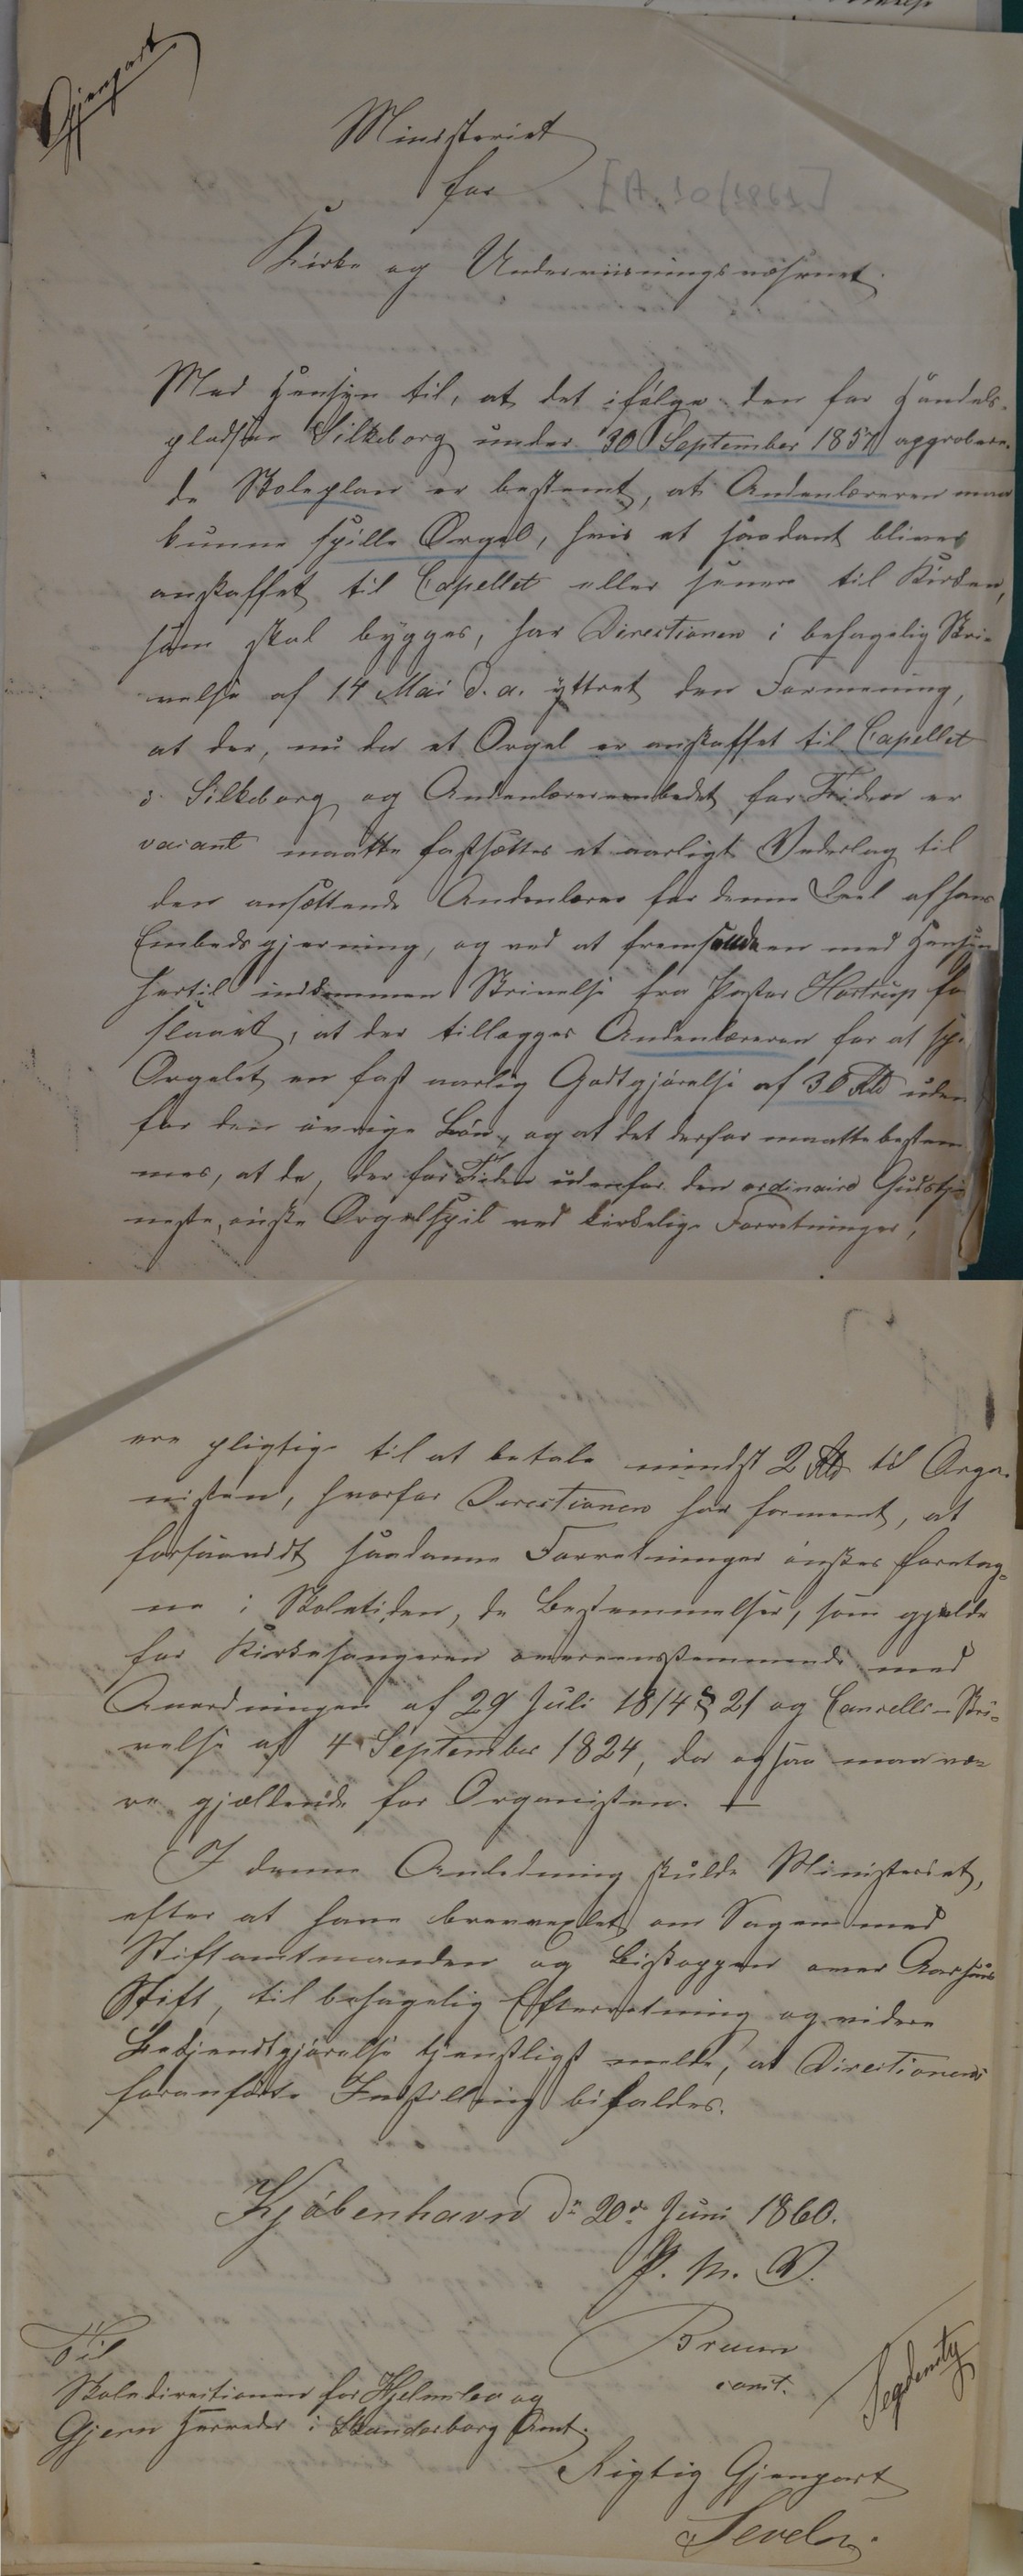 Gjenpart
Ministeriet
for
[A. 10/1861]
Kirke og Underviisningsvæsenet.
Med Hensyn til, at det ifølge den for Handels-
pladsen Silkeborg under 30 September 1857 approbere-
de Skoleplan er bestemt, at Andenlæreren maa
kunne spille Orgel, hvis et saadant bliver
anskaffet til Capellet eller senere til Kirken,
som skal bygges, har Directionen i behagelig Skri-
velse af 14 Mai d. a. yttret den Formening,
at der, nu da et Orgel er anskaffet til Capellet
i Silkeborg og Andenlærerembedet for Tiden er
vacant maatte fastsættes et aarligt Vederlag til
den ansættende Andenlærer for denne Deel af hans
Embedsgjerning, og ved at fremsende en med Hensyn
hertil indkommen Skrivelse fra Pastor Hostrup fo
slaaet, at der tillægges Andenlæreren for at sp
Orgelet en fast aarlig Godtgjørelse af 30 Rd uden
for den øvrige Løn, og at det derfor maatte bestem
mes, at de, der for Tiden udenfor den ordinaire Gudstje
neste, ønske Orgelspil ved kirkelige Forretninger,
ere pligtige til at betale mindst 2 Rd til Orga-
nisten, hvorfor Directionen har formeent, at
forsaavidt saadanne Forretninger ønskes foretag-
ne i Skoletiden, de Bestemmelser, som gjælde
for Kirkesangeren overeensstemmende med
Anordningen af 29 Juli 1814 § 21 og Cancelli-Skri-
velse af 4 September 1824, da ogsaa maa væ-
re gjældende for Organisten.
I denne Anledning skulde Ministeriet,
efter at have brevvexlet om Sagen med
Stiftamtmanden og Biskoppen over Aarhuus
Stift, til behagelig Efterretning og videre
Bekjendtgjørelse tjenstligst melde, at Directionens
foranførte Indstilling bifaldes.
Kjøbenhavn d. 20de Juni 1860.
P. M. V.
Bruun
const.
Til
Skoledirectionen for Hjelmslev og
Gjern Herreder i Skanderborg Amt.
Rigtig Gjenpart